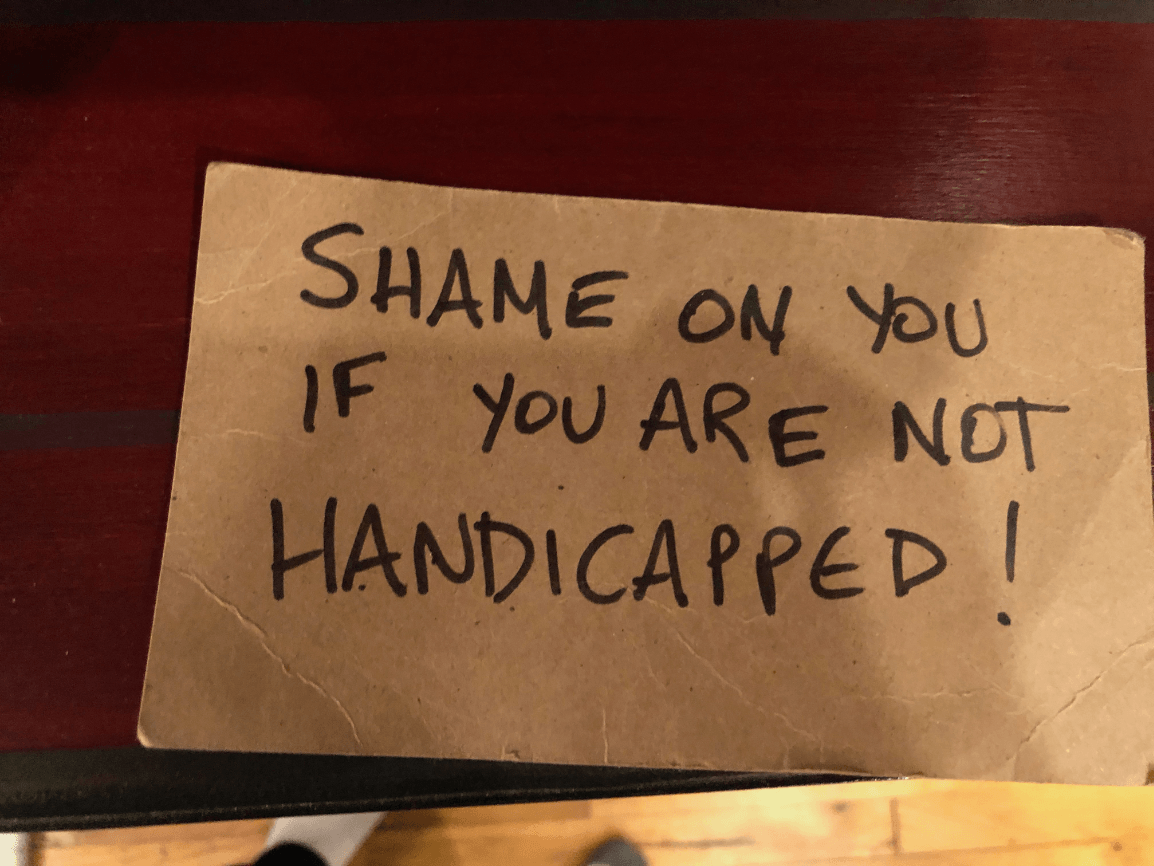 SHAME ON YOU
IF YOU ARE NOT
HANDICAPPED!